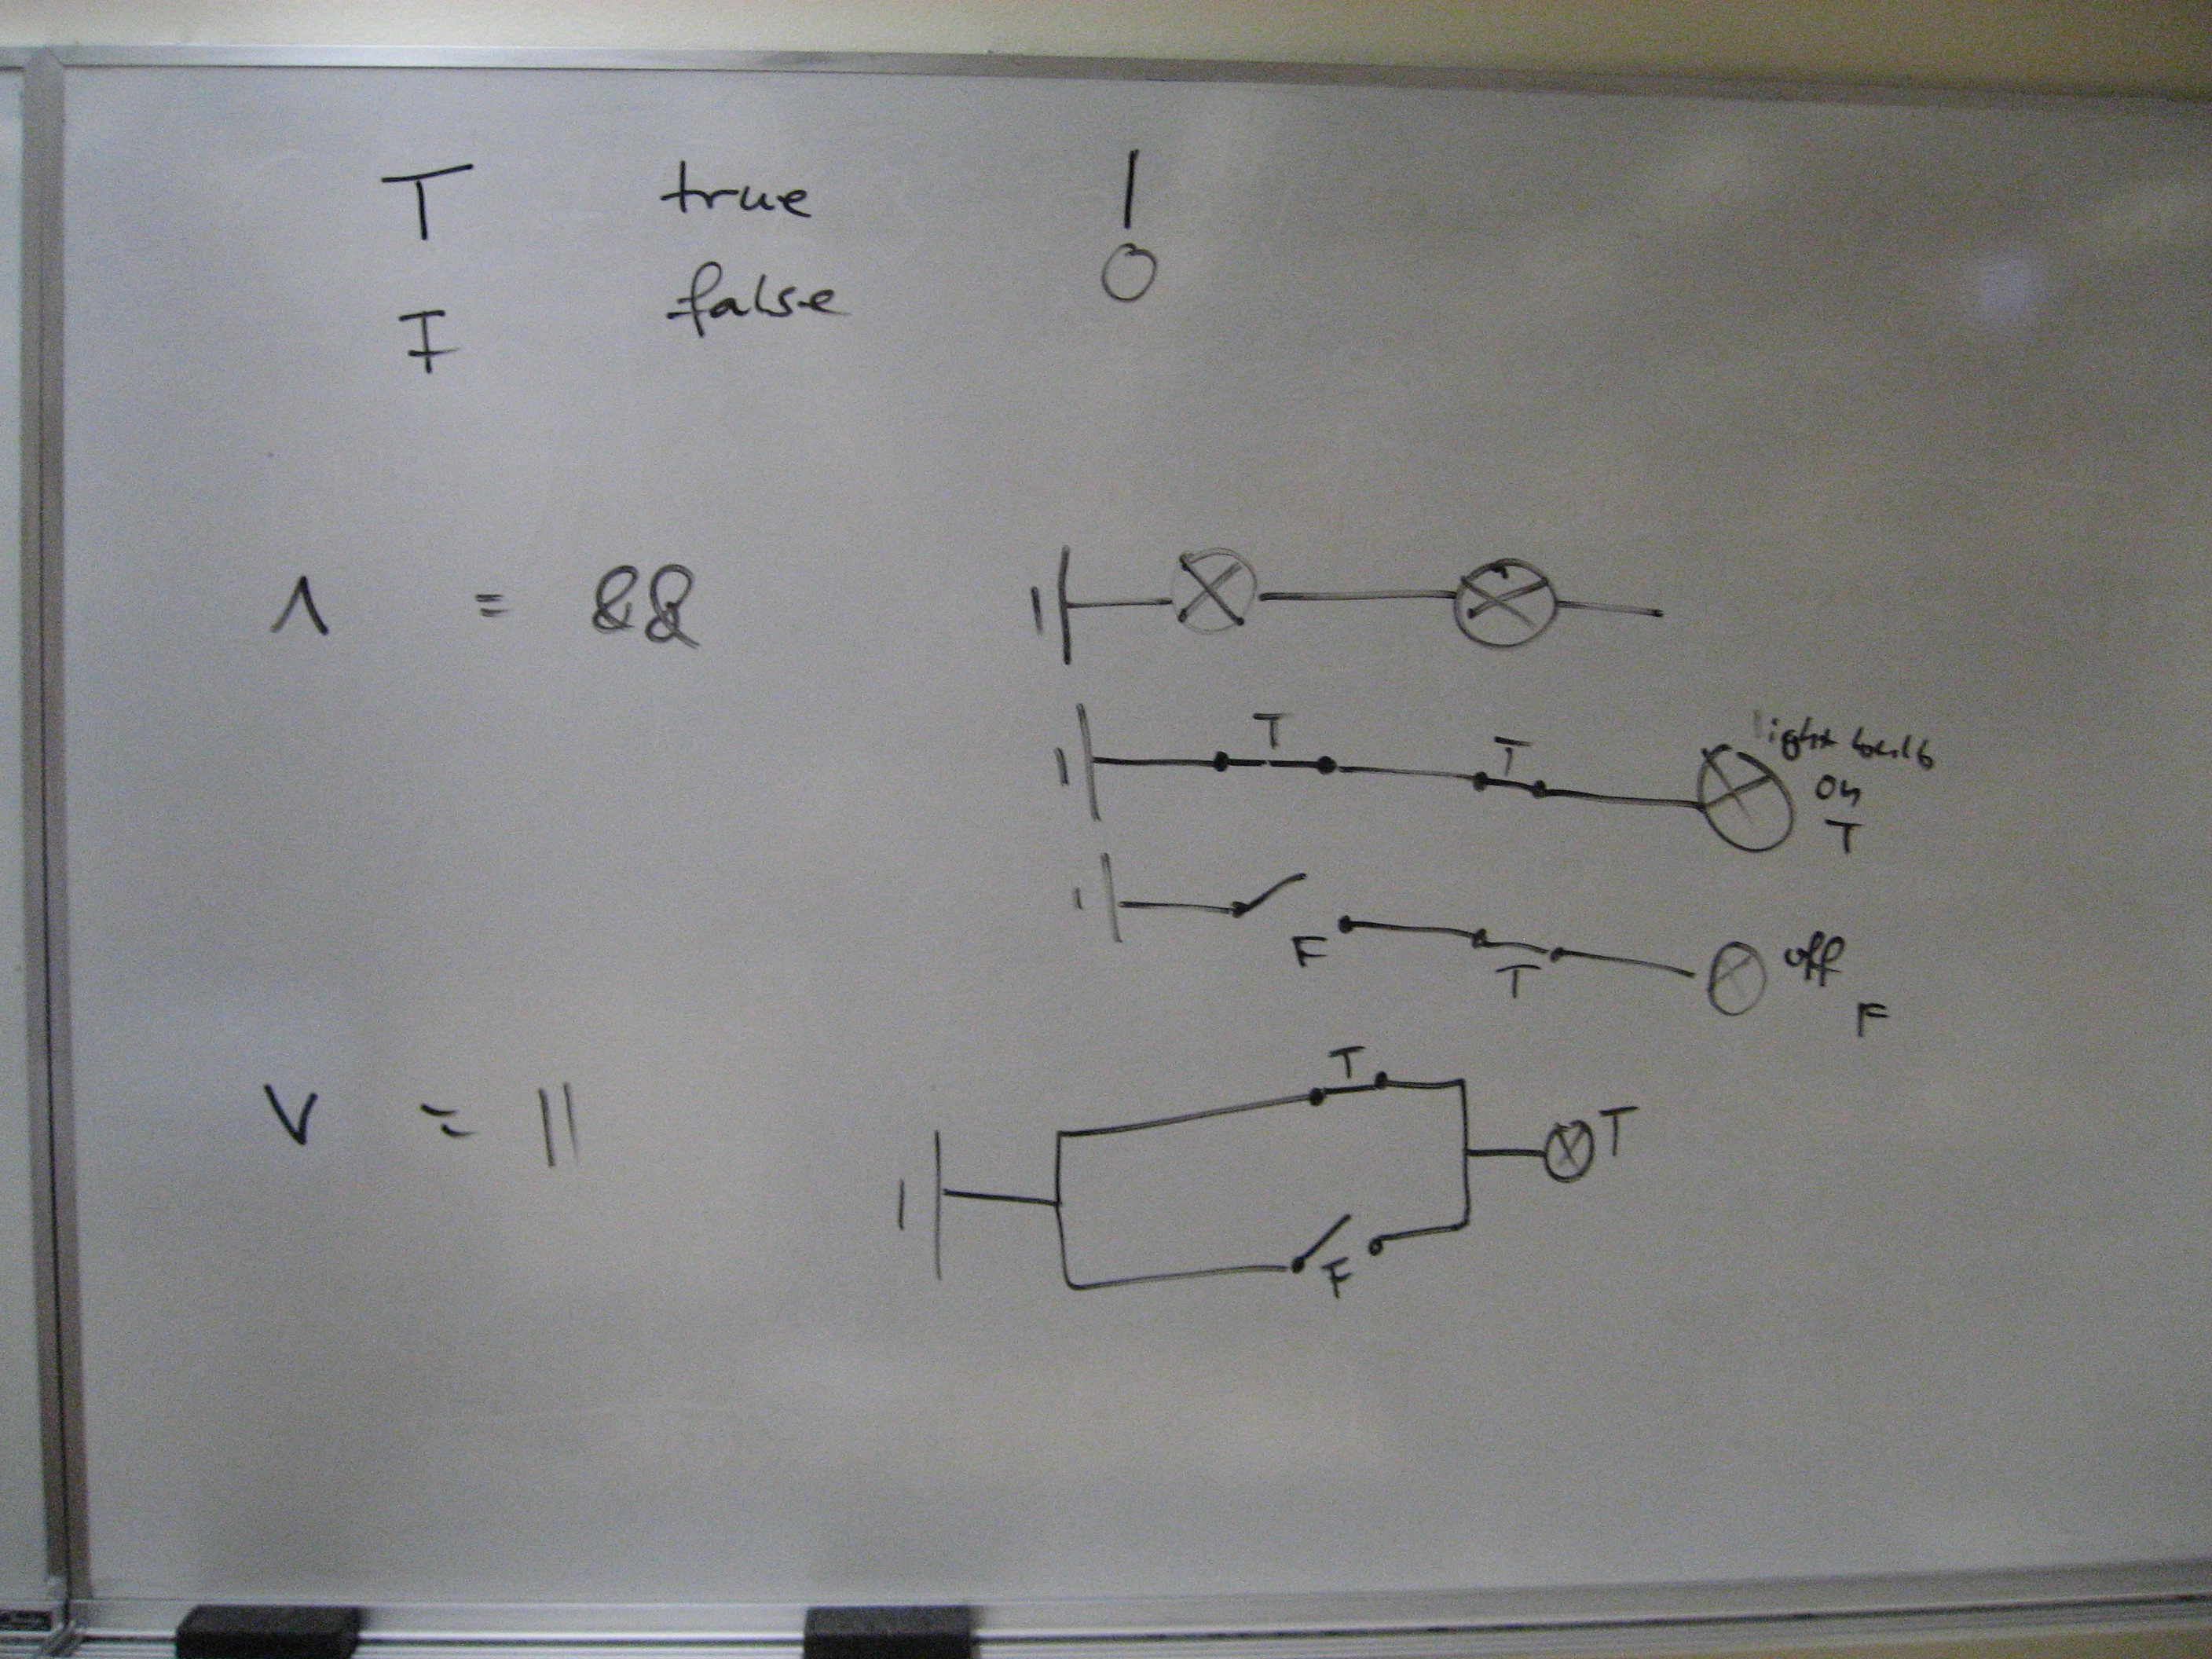 T true 1
F false 0
∧ = &&
T T light bulb
on
T
F T off
F
∨ = ||
T
T
F